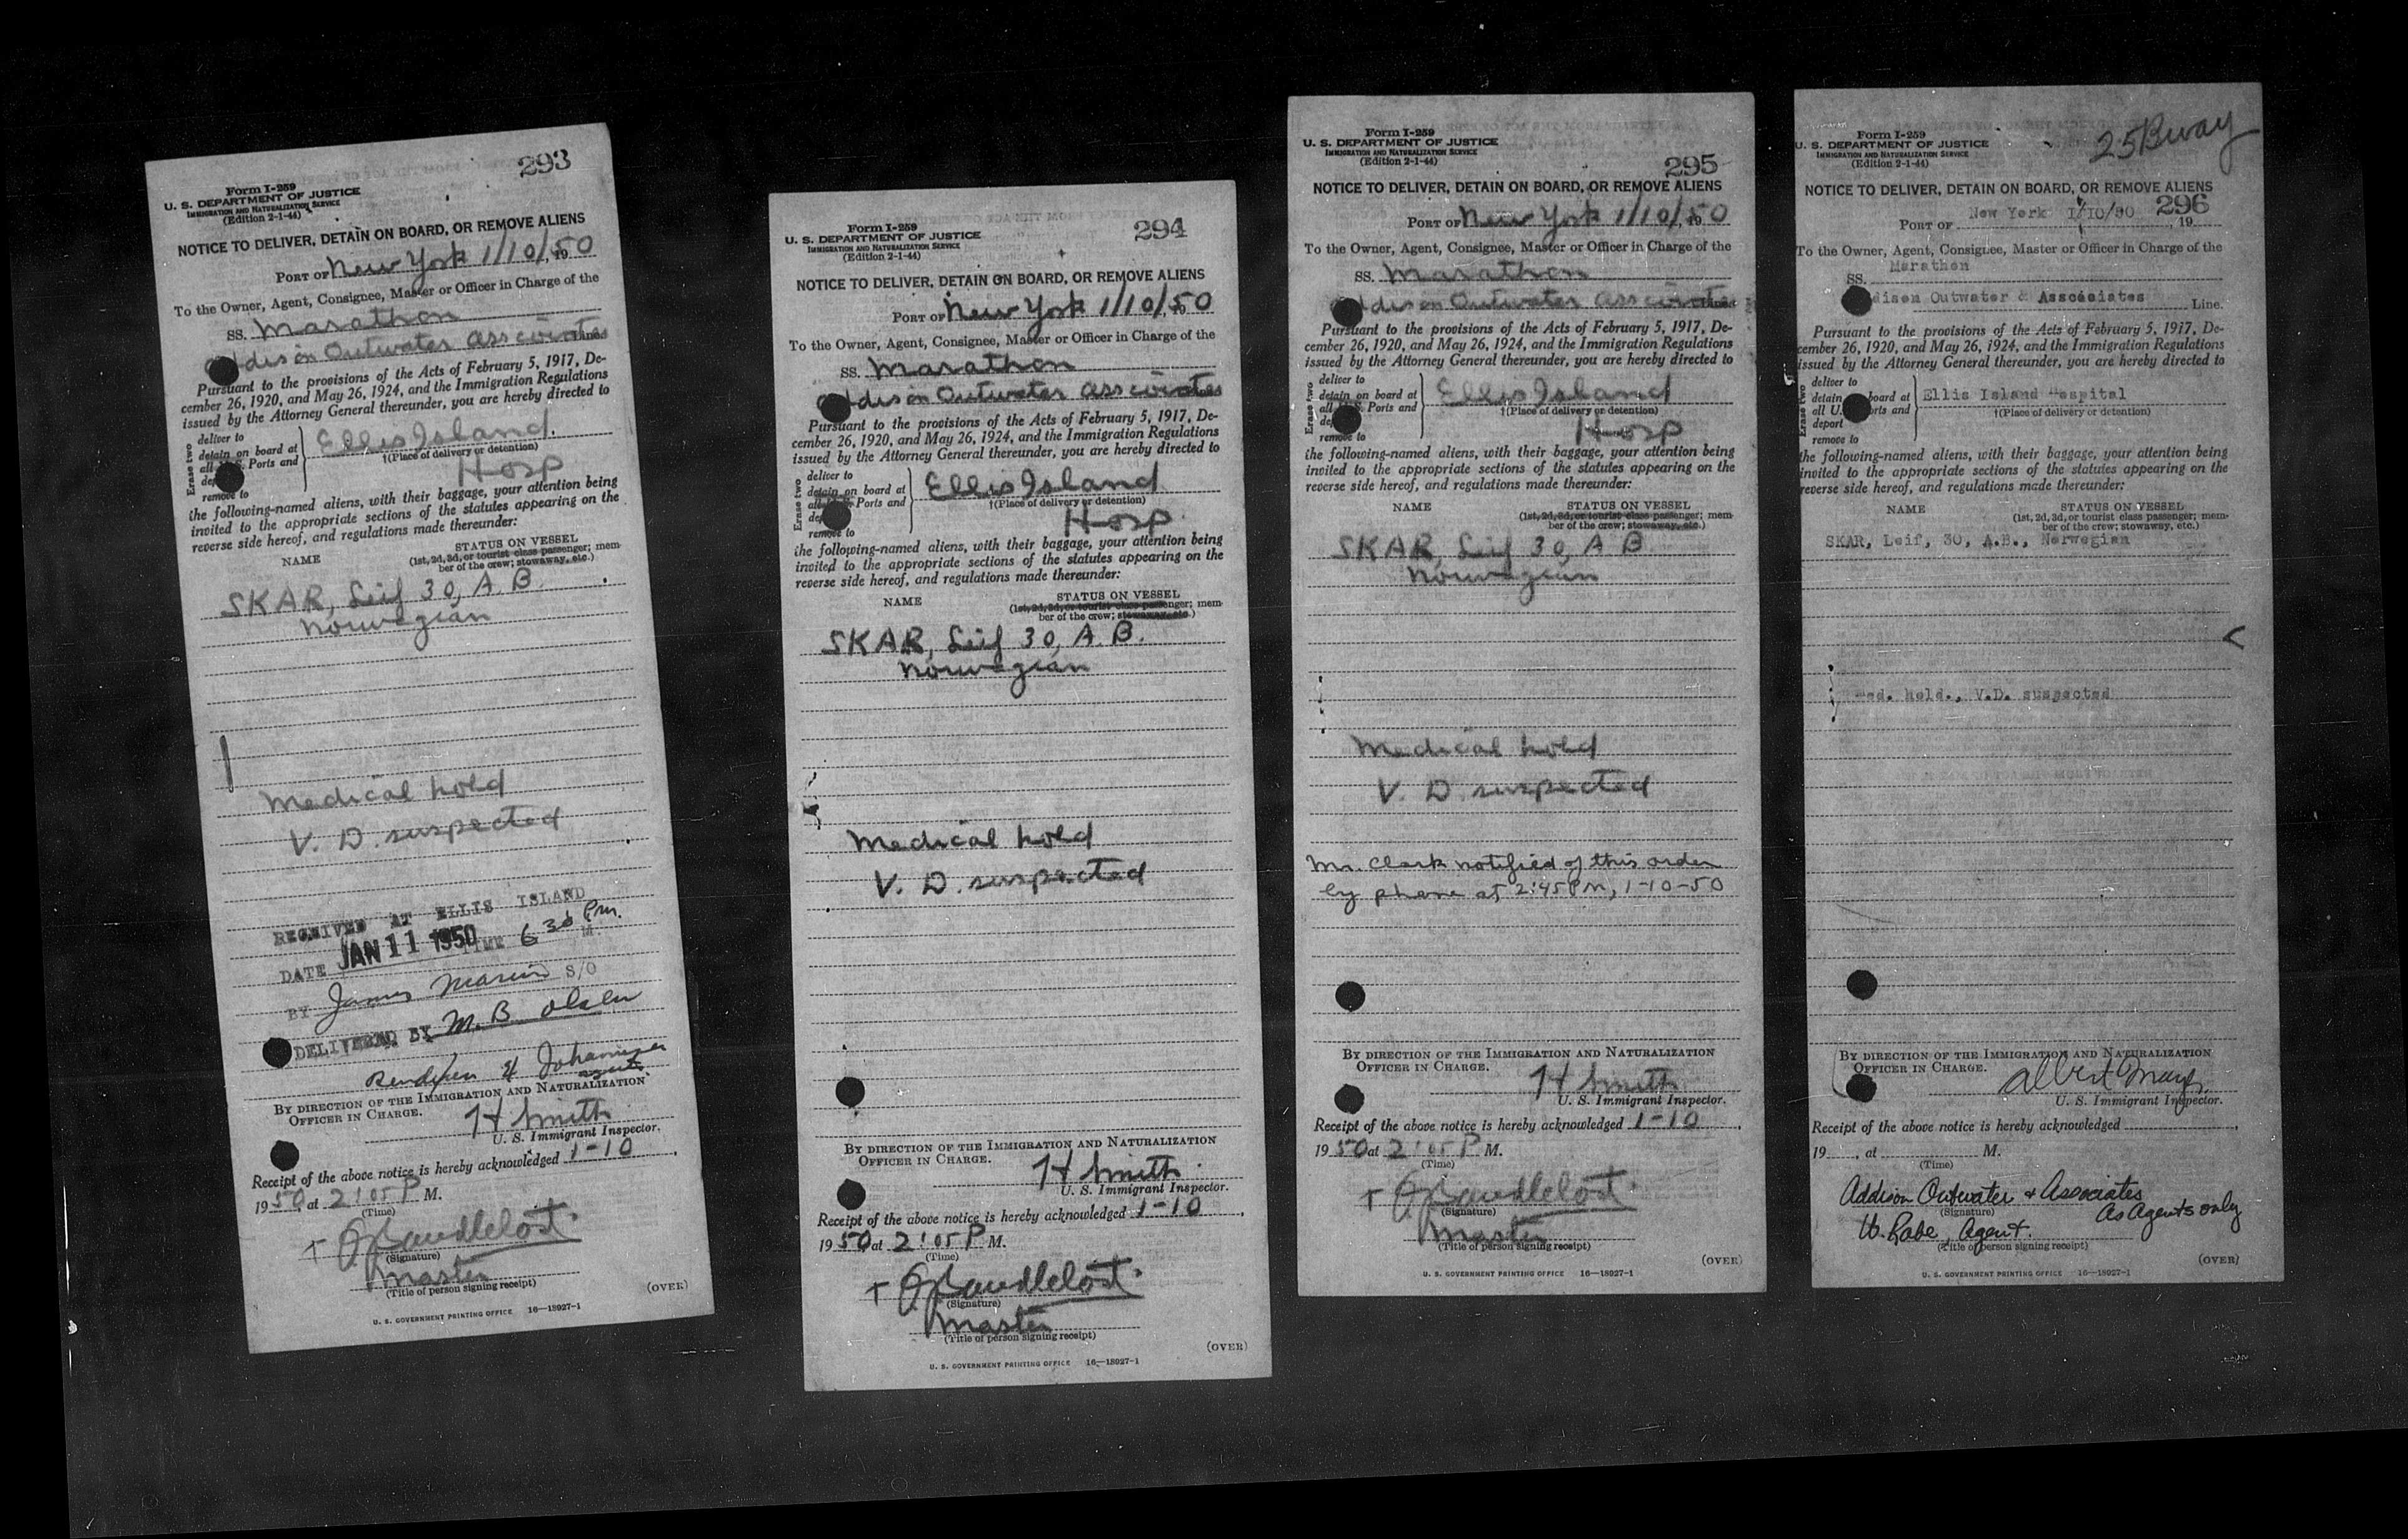 293
Form I-259
U. S. DEPARTMENT OF JUSTICE
IMMIGRATION AND NATURALIZATION SERVICE
(Edition 2-1-44)
NOTICE TO DELIVER, DETAIN ON BOARD, OR REMOVE ALIENS
PORT OF New York 1/10/, 1950
To the Owner, Agent, Consignee, Master or Officer in Charge of the
SS. Marathon
Addison Outwater Associates Line.
Pursuant to the provisions of the Acts of February 5, 1917, De-
cember 26, 1920, and May 26, 1924, and the Immigration Regulations
issued by the Attorney General thereunder, you are hereby directed to
Erase two
deliver to
detain on board at
all U.S. Ports and
remove to
Ellis Island.
†(Place of delivery or detention)
Hosp
the following-named aliens, with their baggage, your attention being
invited to the appropriate sections of the statutes appearing on the
reverse side hereof, and regulations made thereunder:
NAME
STATUS ON VESSEL
(1st, 2d, 3d, or tourist class passenger; mem-
ber of the crew; stowaway, etc.)
SKAR, Leif 30, A.B.
Norwegian
Medical hold
V. D. suspected
RECEIVED AT ELLIS ISLAND
DATE JAN 11 1950 TIME 6 30 Pm. M
BY James S/O
DELIVERED BY M. B. Olsen
BY DIRECTION OF THE IMMIGRATION AND NATURALIZATION
OFFICER IN CHARGE.
H Smith
U. S. Immigrant Inspector.
Receipt of the above notice is hereby acknowledged 1-10,
1950, at 2:05 P M.
(Time)
(Signature)
Master
(Title of person signing receipt)
(OVER)
U. S. GOVERNMENT PRINTING OFFICE 16—18027-1
294
Form I-259
U. S. DEPARTMENT OF JUSTICE
IMMIGRATION AND NATURALIZATION SERVICE
(Edition 2-1-44)
NOTICE TO DELIVER, DETAIN ON BOARD, OR REMOVE ALIENS
PORT OF New York 1/10/50
To the Owner, Agent, Consignee, Master or Officer in Charge of the
SS. Marathon
Addison Outwater Associates
Pursuant to the provisions of the Acts of February 5, 1917, De-
cember 26, 1920, and May 26, 1924, and the Immigration Regulations
issued by the Attorney General thereunder, you are hereby directed to
Erase two
deliver to
detain on board at
all Ports and
remove to
Ellis Island
†(Place of delivery or detention)
Hosp.
the following-named aliens, with their baggage, your attention being
invited to the appropriate sections of the statutes appearing on the
reverse side hereof, and regulations made thereunder:
NAME
STATUS ON VESSEL
(1st, 2d, 3d, or tourist class passenger; mem-
ber of the crew; stowaway, etc.)
SKAR, Leif 30, A.B.
Norwegian
Medical hold
V. D. suspected
BY DIRECTION OF THE IMMIGRATION AND NATURALIZATION
OFFICER IN CHARGE.
H Smith
U. S. Immigrant Inspector.
Receipt of the above notice is hereby acknowledged 1-10,
1950 at 2:05 P M.
(Time)
(Signature)
Master
(Title of person signing receipt)
(OVER)
U. S. GOVERNMENT PRINTING OFFICE 16—18027-1
Form I-259
U. S. DEPARTMENT OF JUSTICE
IMMIGRATION AND NATURALIZATION SERVICE
(Edition 2-1-44)
295
NOTICE TO DELIVER, DETAIN ON BOARD, OR REMOVE ALIENS
PORT OF New York 1/10/, 1950
To the Owner, Agent, Consignee, Master or Officer in Charge of the
SS. Marathon
Addison Outwater Associates Line.
Pursuant to the provisions of the Acts of February 5, 1917, De-
cember 26, 1920, and May 26, 1924, and the Immigration Regulations
issued by the Attorney General thereunder, you are hereby directed to
Erase two
deliver to
detain on board at
all U.S. Ports and
remove to
Ellis Island
†(Place of delivery or detention)
Hosp
the following-named aliens, with their baggage, your attention being
invited to the appropriate sections of the statutes appearing on the
reverse side hereof, and regulations made thereunder:
NAME
STATUS ON VESSEL
(1st, 2d, 3d, or tourist class passenger; mem-
ber of the crew; stowaway, etc.)
SKAR, Leif 30, A B
Norwegian
Medical hold
V. D. suspected
Mr. Clark notified of this order
by phone at 2:45 PM, 1-10-50
BY DIRECTION OF THE IMMIGRATION AND NATURALIZATION
OFFICER IN CHARGE.
H Smith
U. S. Immigrant Inspector.
Receipt of the above notice is hereby acknowledged 1-10,
1950 at 2:05 P M.
(Time)
(Signature)
Master
(Title of person signing receipt)
(OVER)
U. S. GOVERNMENT PRINTING OFFICE 16—18027-1
25 Bway
Form I-259
U. S. DEPARTMENT OF JUSTICE
IMMIGRATION AND NATURALIZATION SERVICE
(Edition 2-1-44)
NOTICE TO DELIVER, DETAIN ON BOARD, OR REMOVE ALIENS
296
PORT OF New York 1/10/50, 19
To the Owner, Agent, Consignee, Master or Officer in Charge of the
SS. Marathon
dison Outwater & Associates Line.
Pursuant to the provisions of the Acts of February 5, 1917, De-
cember 26, 1920, and May 26, 1924, and the Immigration Regulations
issued by the Attorney General thereunder, you are hereby directed to
Erase two
deliver to
detain board at
all U. rts and
deport
remove to
Ellis Island Hospital
†(Place of delivery or detention)
the following-named aliens, with their baggage, your attention being
invited to the appropriate sections of the statutes appearing on the
reverse side hereof, and regulations made thereunder:
NAME
STATUS ON VESSEL
(1st, 2d, 3d, or tourist class passenger; mem-
ber of the crew; stowaway, etc.)
SKAR, Leif, 30, A.B., Norwegian
Med. hold., V.D. suspected
BY DIRECTION OF THE IMMIGRATION AND NATURALIZATION
OFFICER IN CHARGE.
Albert
U. S. Immigrant Inspector.
Receipt of the above notice is hereby acknowledged
19 , at M.
(Time)
Addison Outwater & Associates
(Signature)
As Agents only
W. Rabe, Agent.
(Title of person signing receipt)
(OVER)
U. S. GOVERNMENT PRINTING OFFICE 16—18027-1